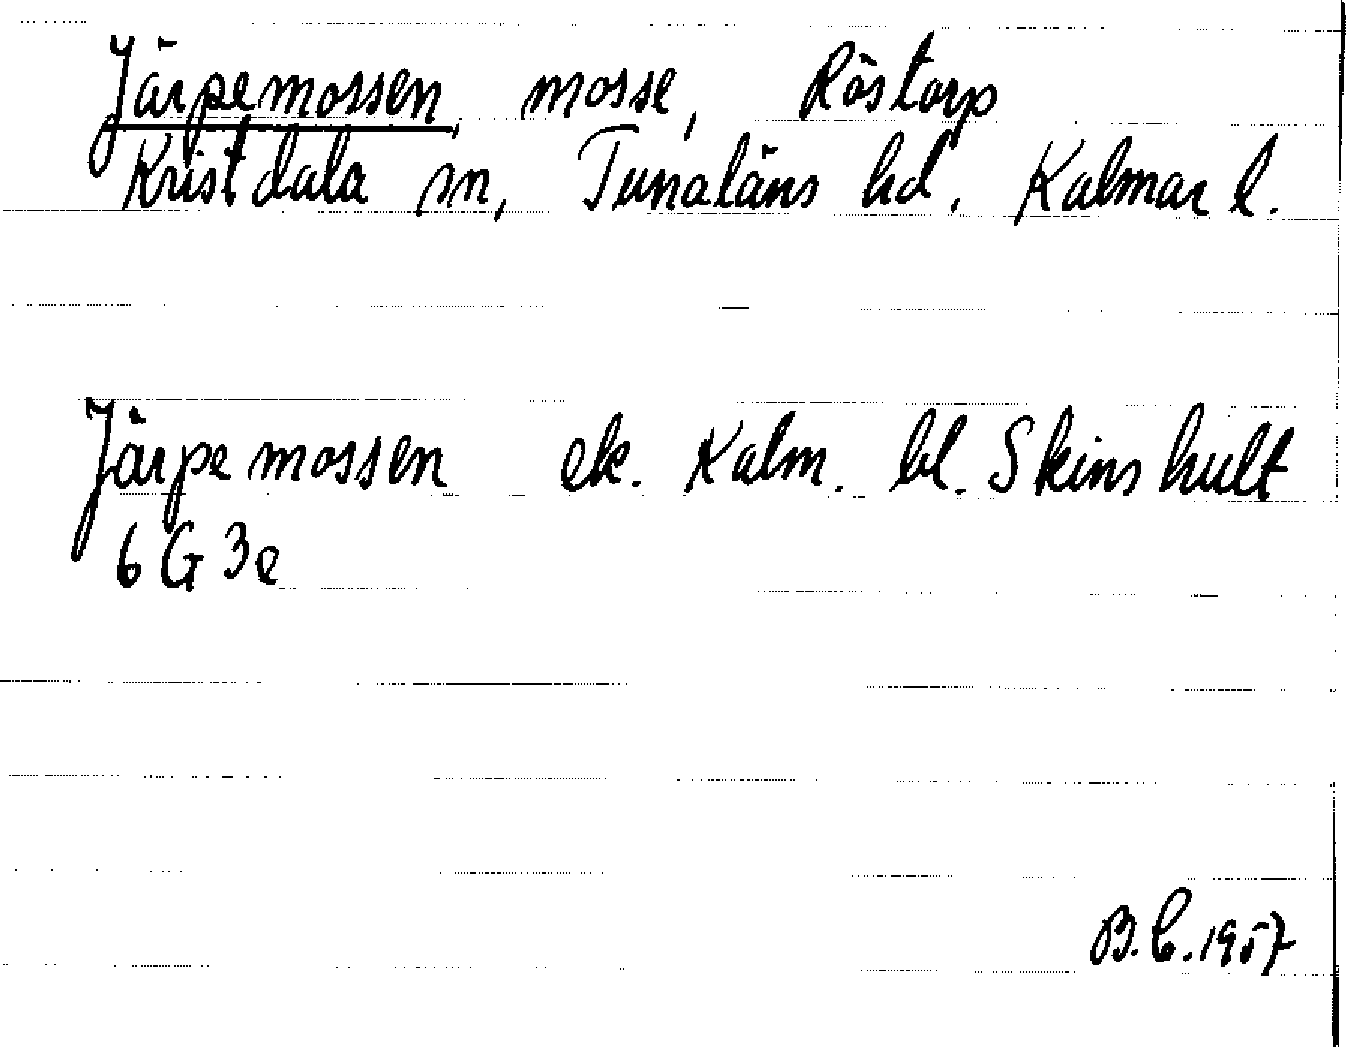 Järpemossen, mosse, Röstorp
Kristdala sn, Tunaläns hd. Kalmar l.
Järpemossen ek. Kalm. bl. Skinshult
6 G 3e
B.C. 1957